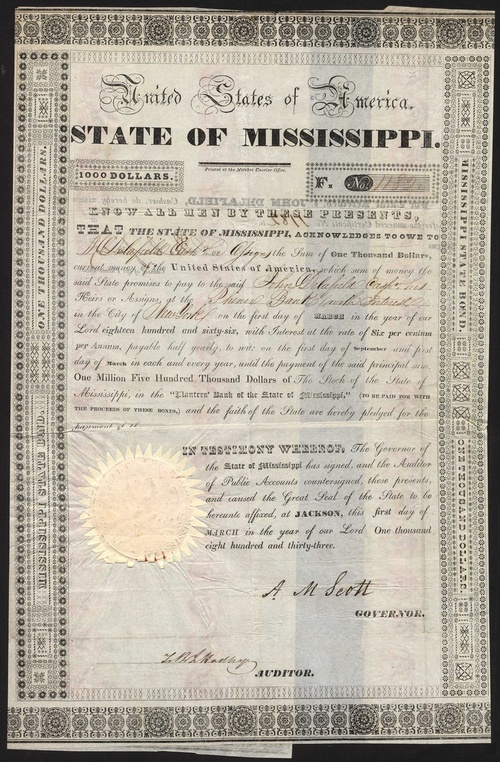 United States of America.
STATE OF MISSISSIPPI.
1000 DOLLARS.
Printed at the Natchez Courier Office.
F. No.
KNOW ALL MEN BY THESE PRESENTS,
THAT THE STATE OF MISSISSIPPI, ACKNOWLEDGES TO OWE TO
J Delafield Cash or Assigns the Sum of One Thousand Dollars,
current money of the United States of America, which sum of money the
said State promises to pay to the said John Delafield Cash or his
Heirs or Assigns, at the Phenix Bank
in the City of New York on the first day of MARCH in the year of our
Lord eighteen hundred and sixty-six, with Interest at the rate of Six per centum
per Annum, payable half yearly, to wit: on the first day of September and first
day of March in each and every year, until the payment of the said principal sum.
One Million Five Hundred Thousand Dollars of The Stock of the State of
Mississippi, in the "Planters' Bank of the State of Mississippi," (TO BE PAID FOR WITH
THE PROCEEDS OF THESE BONDS,) and the faith of the State are hereby pledged for the
IN TESTIMONY WHEREOF, The Governor of
the State of Mississippi has signed, and the Auditor
of Public Accounts countersigned, these presents,
and caused the Great Seal of the State to be
hereunto affixed, at JACKSON, this first day of
MARCH in the year of our Lord One thousand
eight hundred and thirty-three.
A M Scott
GOVERNOR.
AUDITOR.
ONE THOUSAND DOLLARS.
MISSISSIPPI STATE BOND.
MISSISSIPPI STATE BOND.
ONE THOUSAND DOLLARS.